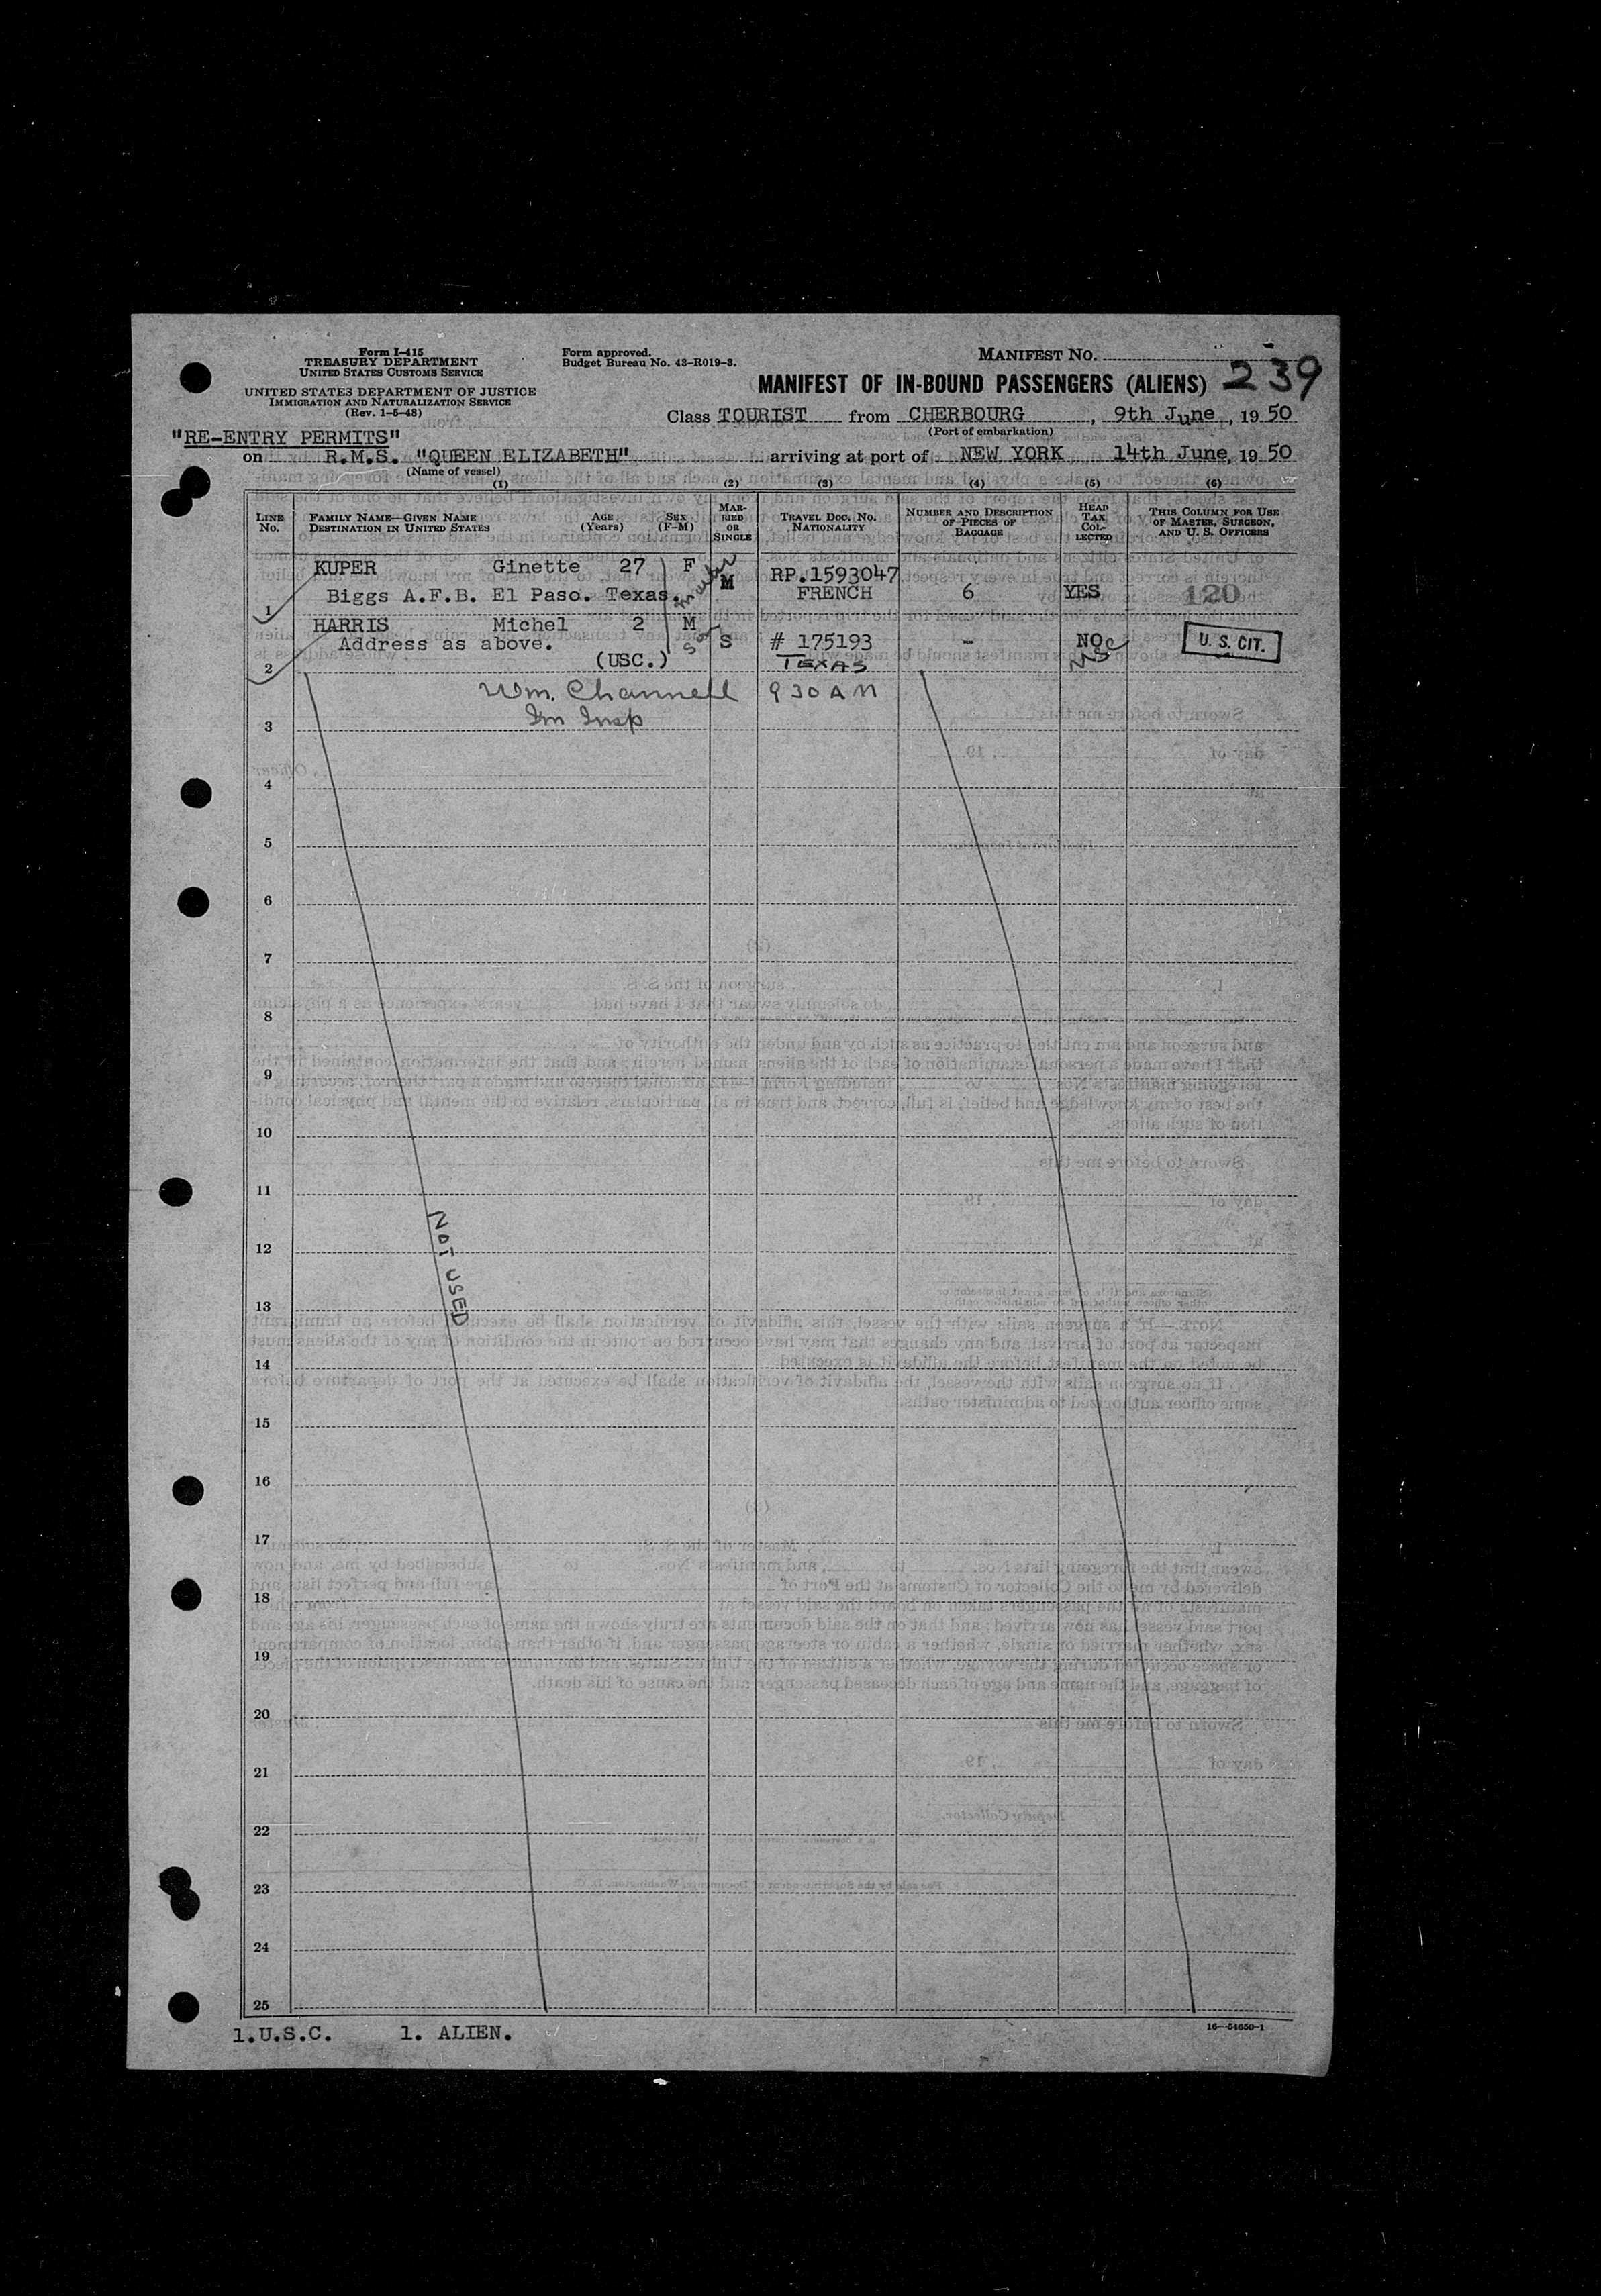 Form I-415
TREASURY DEPARTMENT
UNITED STATES CUSTOMS SERVICE
UNITED STATES DEPARTMENT OF JUSTICE
IMMIGRATION AND NATURALIZATION SERVICE
(Rev. 1-5-48)
Form approved.
Budget Bureau No. 43-R019-3.
MANIFEST NO.
239
MANIFEST OF IN-BOUND PASSENGERS (ALIENS)
Class TOURIST from CHERBOURG, 9th June, 1950
(Port of embarkation)
"RE-ENTRY PERMITS"
on R.M.S. "QUEEN ELIZABETH" arriving at port of NEW YORK 14th June, 1950
(Name of vessel)
(1) (2) (3) (4) (5) (6)
LINE No.
FAMILY NAME—GIVEN NAME
DESTINATION IN UNITED STATES
AGE (Years)
SEX (F-M)
MARRIED OR SINGLE
TRAVEL DOC. NO. NATIONALITY
NUMBER AND DESCRIPTION OF PIECES OF BAGGAGE
HEAD TAX COLLECTED
THIS COLUMN FOR USE OF MASTER, SURGEON, AND U. S. OFFICERS
KUPER Ginette 27 F M RP.1593047
1 Biggs A.F.B. El Paso. Texas. FRENCH 6 YES 120
mother
HARRIS Michel 2 M S # 175193 - NO U. S. CIT.
2 Address as above. (USC.) TEXAS
son
Wm. Channell 930 AM
Im Insp
3
4
5
6
7
8
9
10
11
12
NOT USED
13
14
15
16
17
18
19
20
21
22
23
24
25
1.U.S.C. 1. ALIEN.
16-54650-1